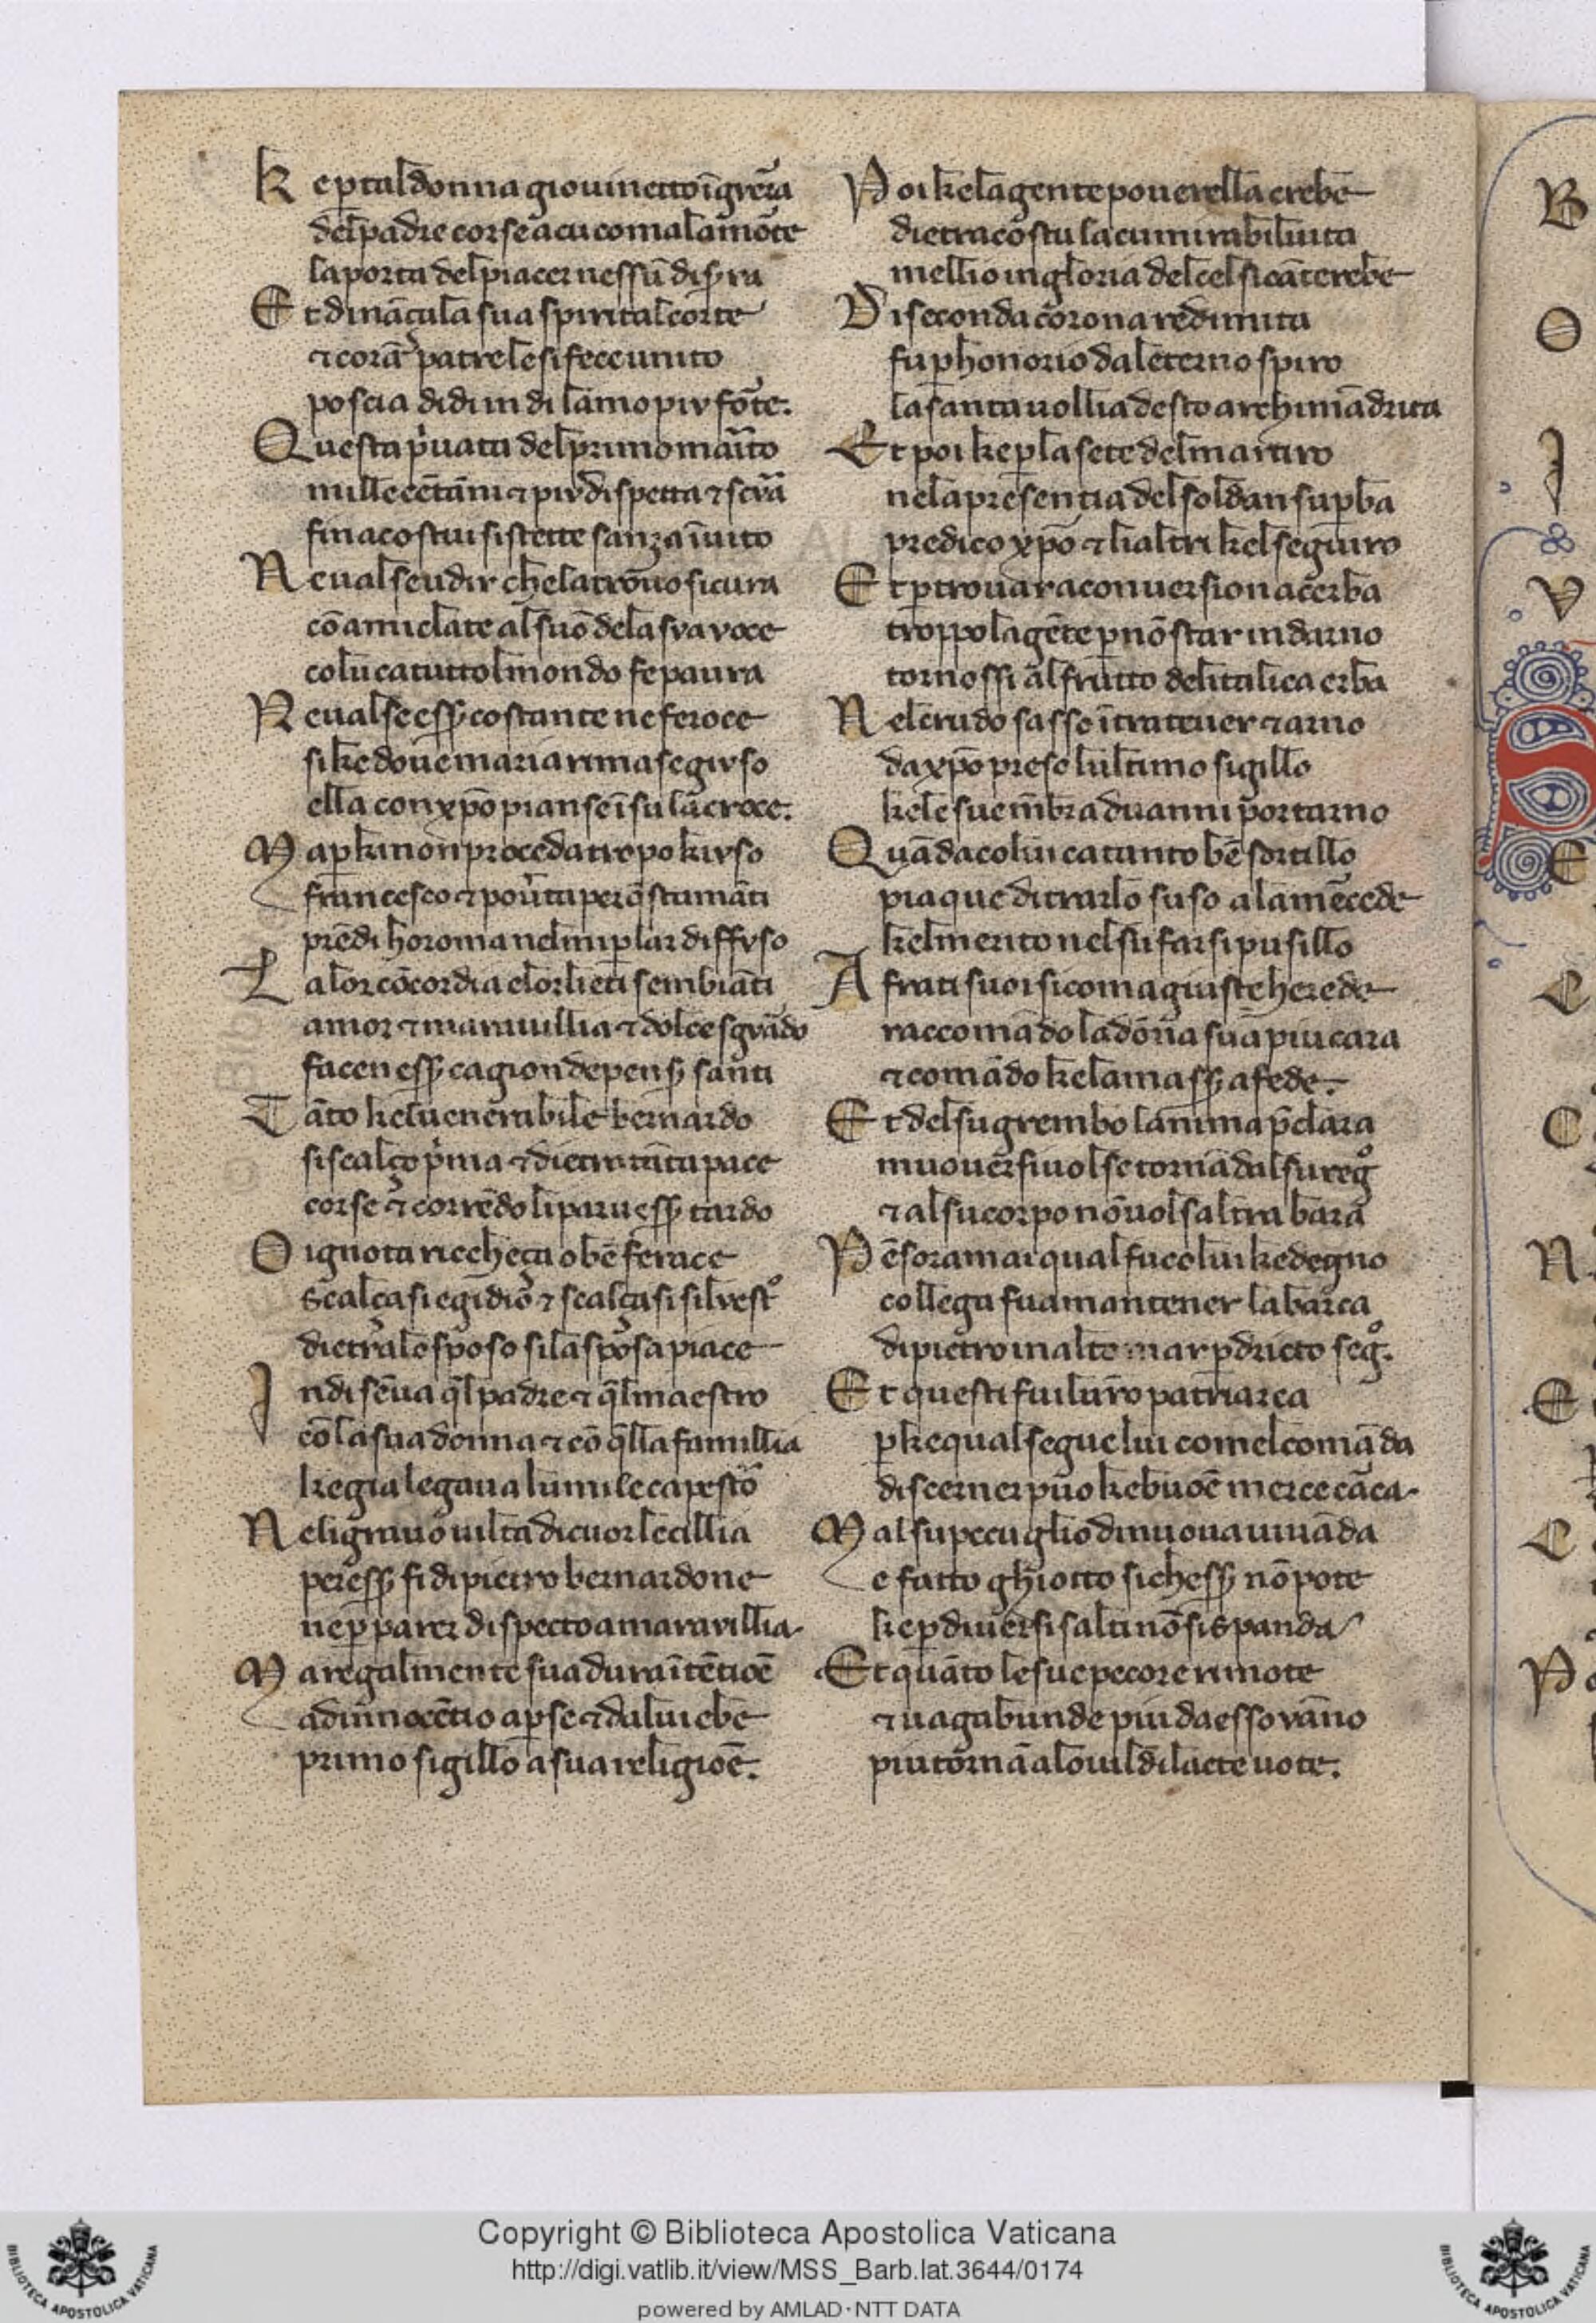 K e p̱ tal donna giouinetto ĩ grẽra
del padre corse a cu com a la mõte
la porta del piacer nessũ disṣra
E t dinãci a la sua spirital corte
⁊ corã patre le si fece unito
poscia di di in di l amo piv fõte.
Q uesta p̓uata del primo mar̃ito
mille cẽt ãni ⁊ piv dispetta ⁊ scvra
fin a costui si stette sanza ĩuito
N e ual se udir che la trouo sicura
cõ amiclate al suõ de la sva voce
colui ca tutto l mondo fe paura
N e ual se esṣ costante ne feroce
si ke doue maria rimase givso
ella con xp̃o pianse ĩ su la croce.
M a p̱ k i non proceda tropo kivso
francesco ⁊ pou̓ta per q̃sti amãti
prẽdi horoma nel mi p̱lar diffvso
L a lor cõcordia e lor lieti sembiãti
amor ⁊ marauillia ⁊ dolce sgvãdo
facen esṣ cagion de pensṣ santi
T ãto ke l uenerabile bernardo
si scalço p̓ma ⁊ dietro a tãta pace
corse ⁊ corrẽdo li paru esṣ tardo
O ignota riccheça o bẽ ferace
scalçasi egidio ⁊ scalçasi siluestᵒ
dietr a lo sposo si la sposa piace
I ndi sẽ ua q̃l padre ⁊ q̃l maestro
cõ la sua donna ⁊ cõ q̃lla famillia
ke gia legaua l umile capestᵒ
N e li grauo uilta di cuor le cillia
per esṣ fi di pietro bernardone
ne p̱ parer dispecto a maravillia.
M a regalmente sua dura ĩtẽtioẽ
ad innocẽtio ap̱se ⁊ da lui ebe
primo sigillo a sua religioẽ.
P oi ke la gente pouerella crebe
dietr a costu la cu mirabil uita
mellio in gloria del cel si cãterebe
D i seconda corona redimita
fu p̱ honorio da l eterno spiro
la santa uollia d esto archimãdrita
E t poi ke p̱ la sete del martiro
ne la presentia del soldan sup̱ba
predico xp̃o ⁊ li altri ke l seguiro
E t p̱ trouar a conuersion acerba
troppo la gẽte p̱ nõ star indarno
tornossi al frutto de l italica erba
N el crudo sasso ĩtra teuer ⁊ arno
da xp̃o prese l ultimo sigillo
ke le sue mẽbra du anni portarno
Q uãd a colui ca tanto bẽ sortillo
piaque di trarlo suso a la mẽcede
ke l merito nel su farsi pusillo
A frati suoi si com a giuste herede
raccomãdo la dõna sua piu cara
⁊ comãdo ke l amasṣ a fede.
E t del su grembo l anima p̃clara
muouersi uolse tornãd al su regᵒ
⁊ al su corpo nõ uols altra bara
P ẽs oramai qual fu colui ke degno
collega fu a mantener la barca
di pietro in alto mar p̱ dricto segᵒ.
E t questi fu il nr̃o patriarca
p̱ ke qual segue lui com el comãda
discerner puo ke buoẽ merce cãca.
M a l su peculio di nuoua uiuãda
e fatto ghiotto si ch esṣ nõ pote
ke p̱ diuersi salti nõ si spanda
E t quãto le sue pecore rimote
⁊ uagabunde piu da esso vãno
piu tornã a l ouil di lacte uote.
B
O
I
V
S
E
L
C
N
E
L
P
Copyright © Biblioteca Apostolica Vaticana
http://digi.vatlib.it/view/MSS_Barb.lat.3644/0174
powered by AMLAD·NTT DATA
BIBLIOTECA APOSTOLICA VATICANA
BIBLIOTECA APOSTOLICA VATICANA